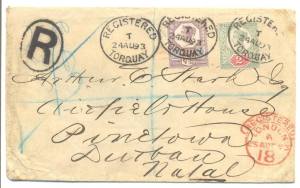 REGISTERED
T
24 AU 93
TORQUAY
REGISTERED
T
24 AU 93
TORQUAY
R
Arthur C Stark Esq
Fairfield House
Pinetown
Durban
Natal
REGISTERED
LONDON
25 AU 93
18